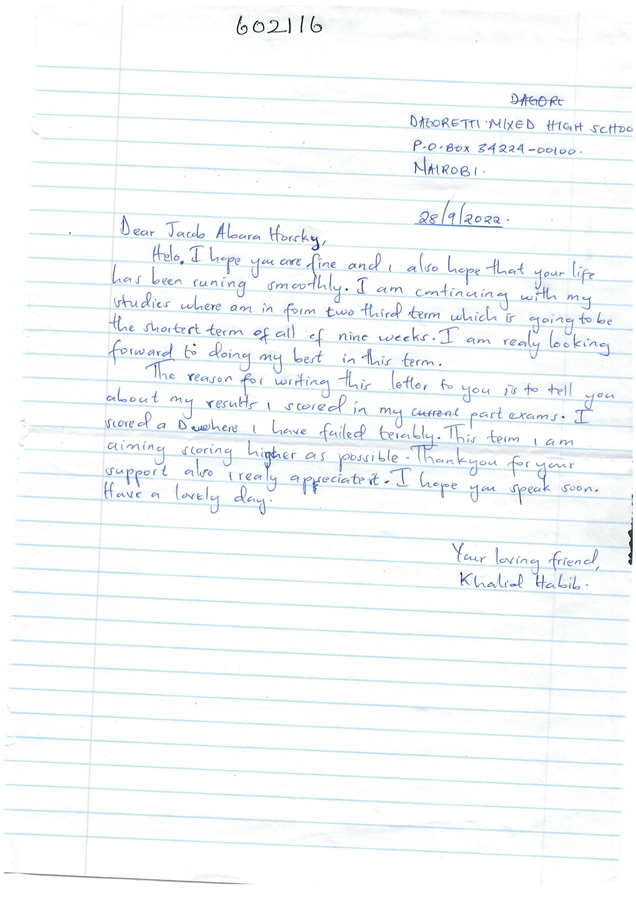 602116
DAGORE
DAGORETTI MIXED HIGH SCHOO
P.O.BOX 34224-00100.
NAIROBI.
28/9/2022.
Dear Jacob Aboara Horsky,
Helo. I hope you are fine and i also hope that your life
has been runing smoothly. I am continuing with my
studies where am in form two third term which is going to be
the shortest term of all of nine weeks. I am realy looking
forward to doing my best in this term.
The reason for writing this letter to you is to tell you
about my results i scored in my current past exams. I
scored a D where i have failed terably. This term i am
aiming scoring higher as possible. Thankyou for your
support also i realy appreciate it. I hope you speak soon.
Have a lovely day.
Your loving friend,
Khalid Habib.